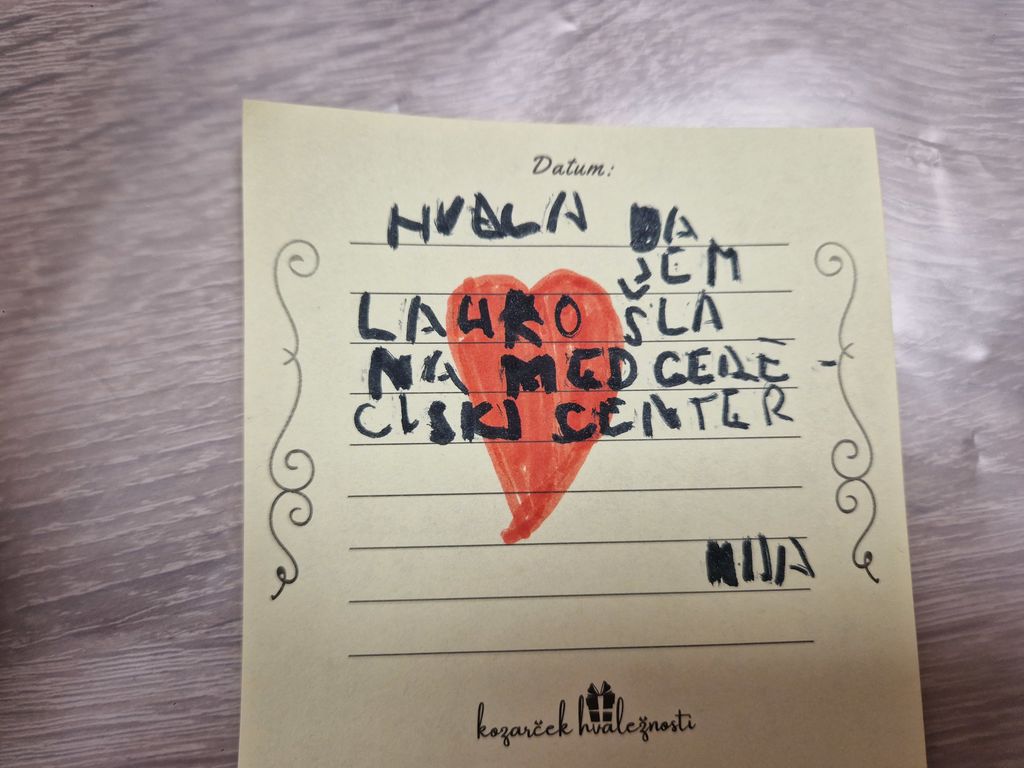 Datum:
HVALA DA
SEM
LAHKO ŠLA
NA MEDGENE-
CISKI CENTER
MIJA
kozarček hvaležnosti